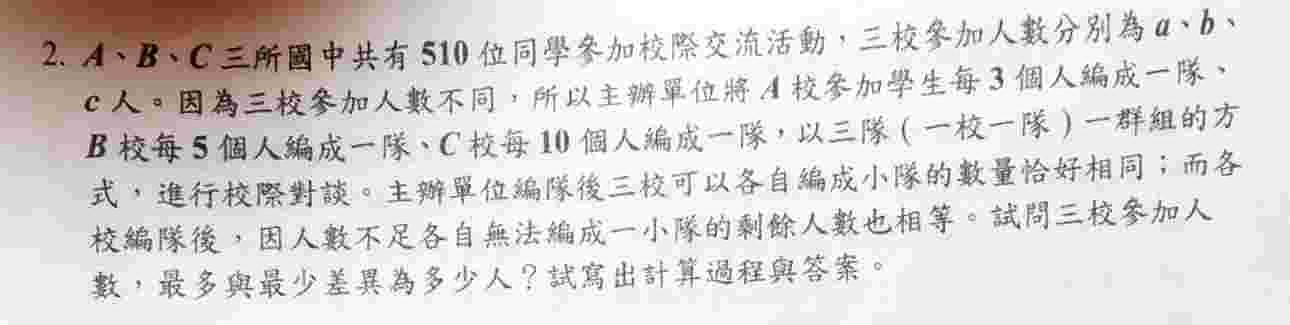 2. A、B、C 三所國中共有 510 位同學參加校際交流活動，三校參加人數分別為 a、b、
c 人。因為三校參加人數不同，所以主辦單位將 A 校參加學生每 3 個人編成一隊、
B 校每 5 個人編成一隊、C 校每 10 個人編成一隊，以三隊（一校一隊）一群組的方
式，進行校際對談。主辦單位編隊後三校可以各自編成小隊的數量恰好相同；而各
校編隊後，因人數不足各自無法編成一小隊的剩餘人數也相等。試問三校參加人
數，最多與最少差異為多少人？試寫出計算過程與答案。